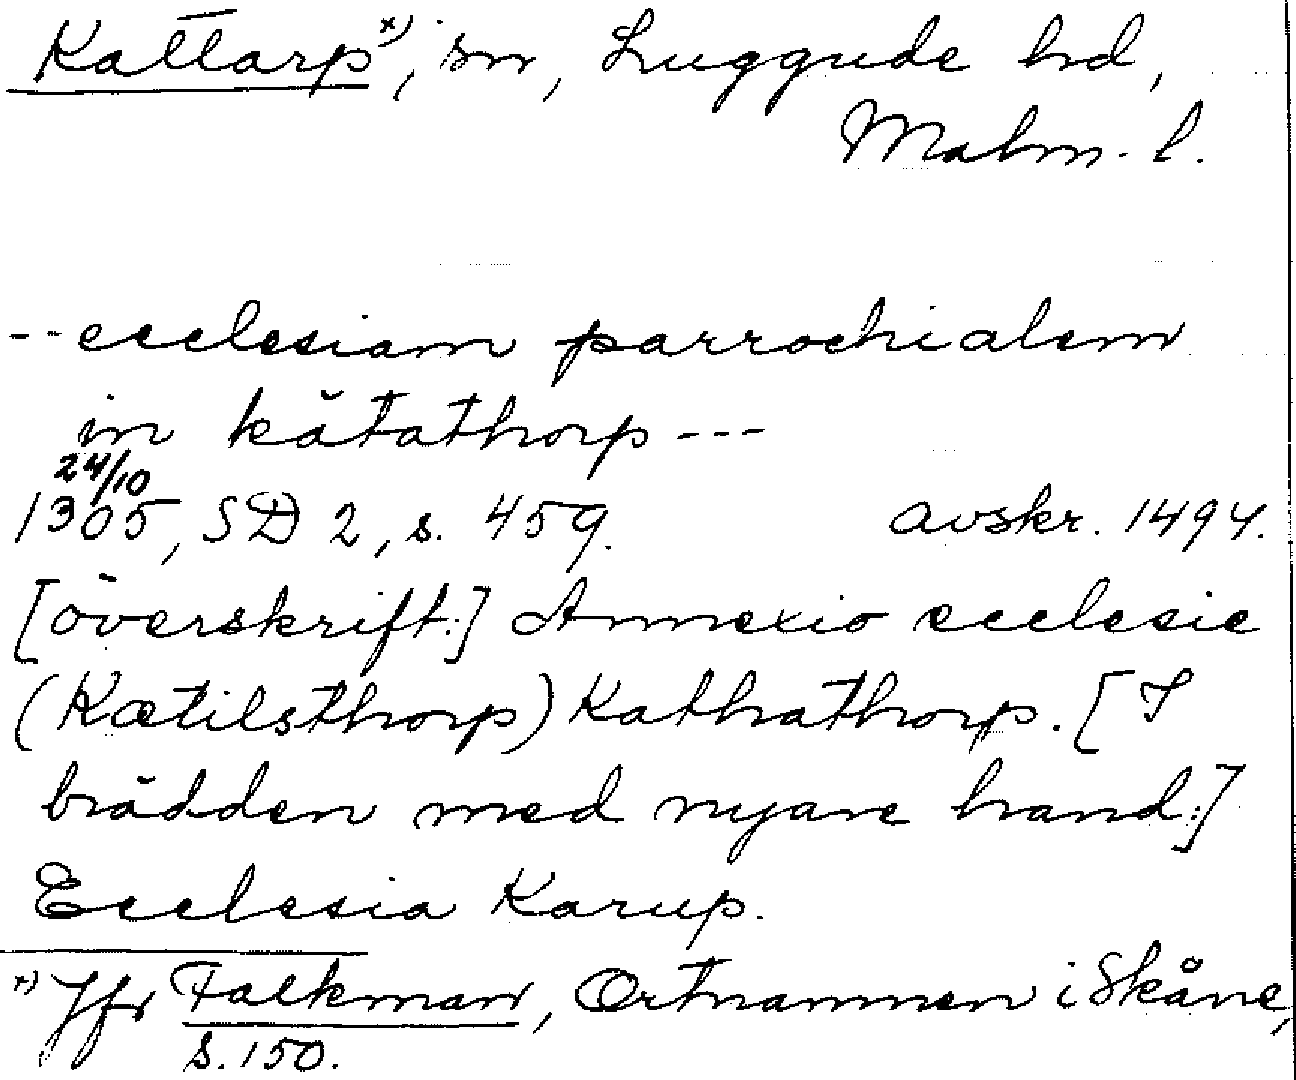 Kattarp x), sn, Luggude hd,
Malm. l.
-- ecclesiam parrochialem
in kătathorp ---
24/10
1305, SD 2, s. 459. avskr. 1494.
[överskrift:] Annexio ecclesie
(Kætilsthorp) Kathathorp. [I
brädden med nyare hand:]
Ecclesia Karup.
x) Jfr Falkman, Ortnamnen i Skåne,
s. 150.